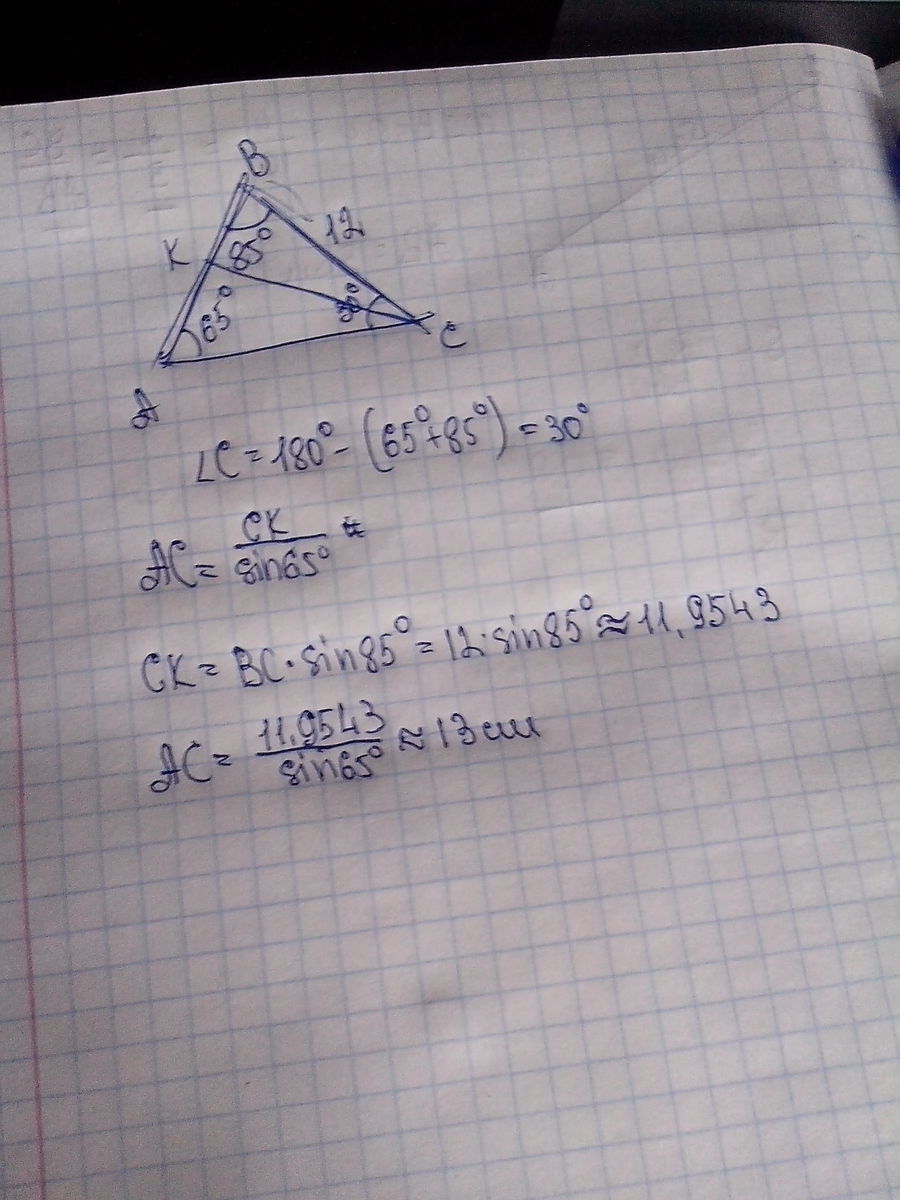 B
12
K
85°
65°
30°
C
A
∠C = 180° - (65° + 85°) = 30°
AC = CK / sin65° =
CK = BC · sin85° = 12 · sin85° ≈ 11,9543
AC = 11,9543 / sin65° ≈ 13 см